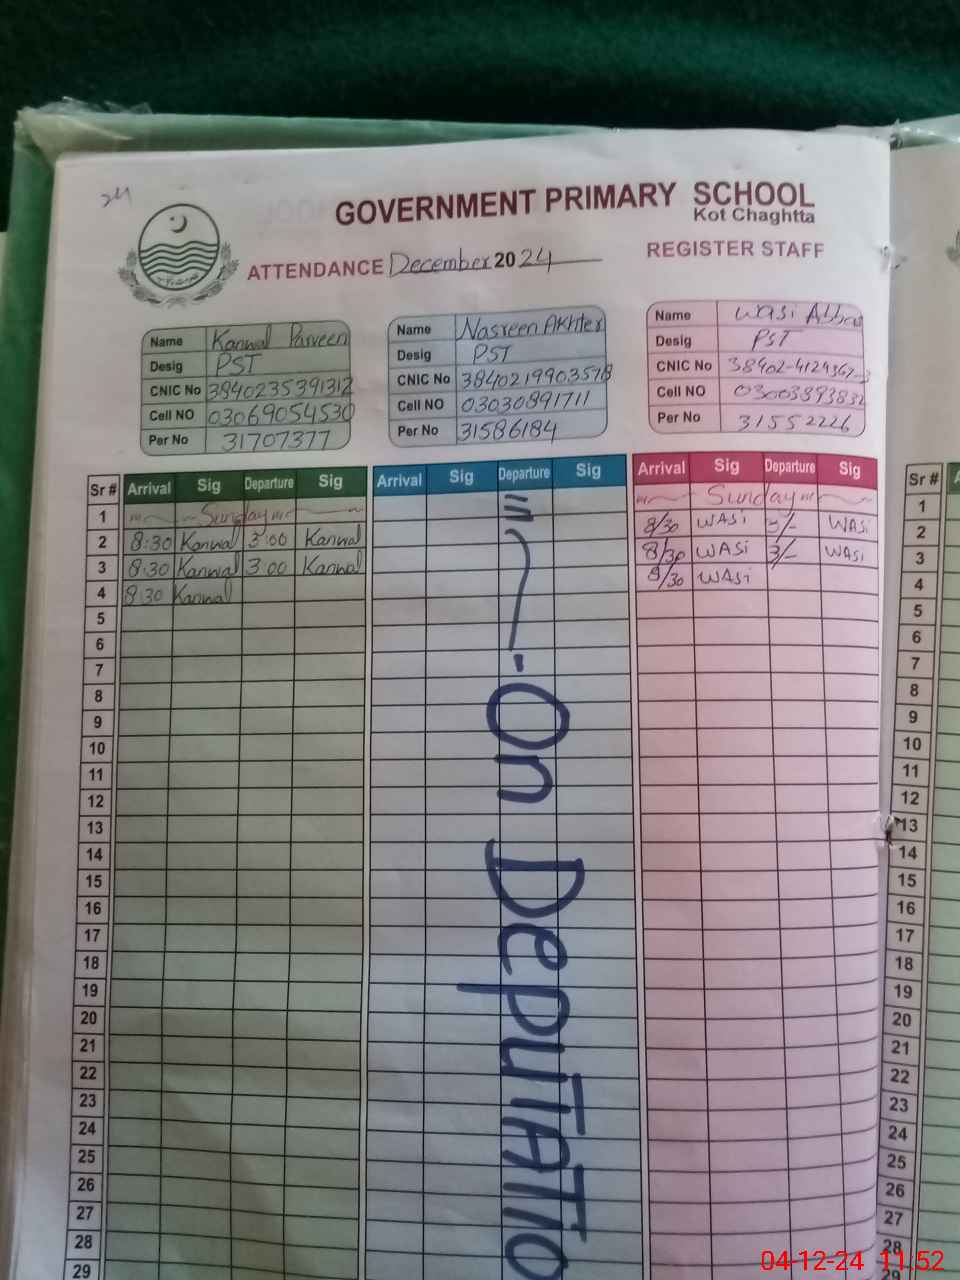 24
GOVERNMENT PRIMARY SCHOOL
Kot Chaghtta
ATTENDANCE December 2024 REGISTER STAFF
Name Kanwal Parveen
Desig PST
CNIC No 3840235391312
Cell NO 03069054530
Per No 31707377
Name Nasreen Akhter
Desig PST
CNIC No 3840219903578
Cell NO 03030891711
Per No 31586184
Name Wasi Abbas
Desig PST
CNIC No
Cell NO
Per No 31552226
Sr # Arrival Sig Departure Sig Arrival Sig Departure Sig Arrival Sig Departure Sig
1 Sunday Sunday
2 8:30 Kanwal 3:00 Kanwal 8/30 WASi 3/- WASi
3 8:30 Kanwal 3:00 Kanwal 8/30 WASi 3/- WASi
4 8:30 Kanwal 8/30 WASi
5
6
7
8
9
10
11
12
13
14
15
16
17
18
19
20
21
22
23
24
25
26
27
28
29
On DepuTATio
Sr #
1
2
3
4
5
6
7
8
9
10
11
12
13
14
15
16
17
18
19
20
21
22
23
24
25
26
27
28
29
04-12-24 11:52